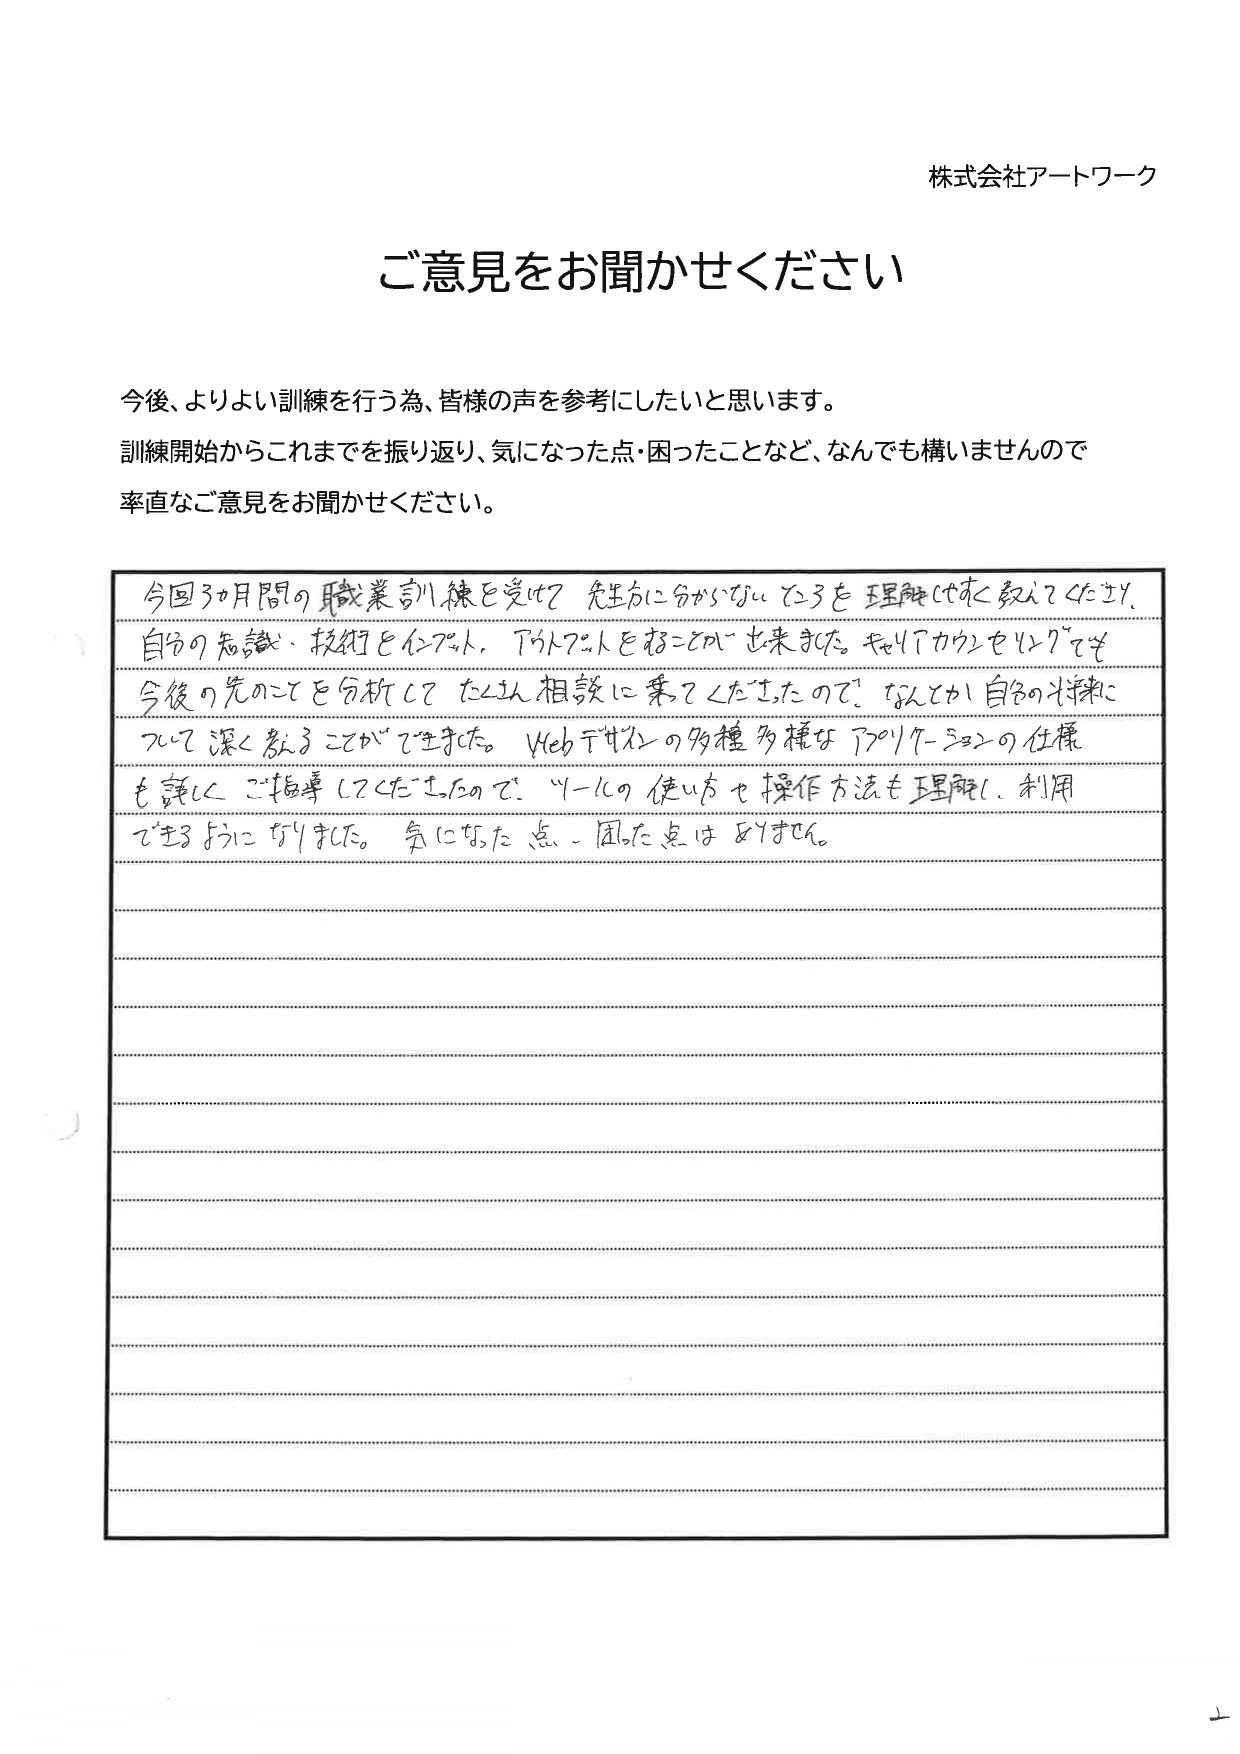 株式会社アートワーク
ご意見をお聞かせください
今後、よりよい訓練を行う為、皆様の声を参考にしたいと思います。
訓練開始からこれまでを振り返り、気になった点・困ったことなど、なんでも構いませんので
率直なご意見をお聞かせください。
今回3カ月間の職業訓練を受けて 先生方に分からないところを理解しやすく教えてくださり、
自分の知識・技術をインプット、アウトプットをすることが出来ました。キャリアカウンセリングでも
今後の先のことを分析して たくさん相談に乗ってくださったので、なんとか自分の将来に
ついて深く考えることができました。Webデザインの多種多様なアプリケーションの仕様
も詳しくご指導してくださったので、ツールの使い方や操作方法も理解し、利用
できるようになりました。気になった点、困った点はありません。